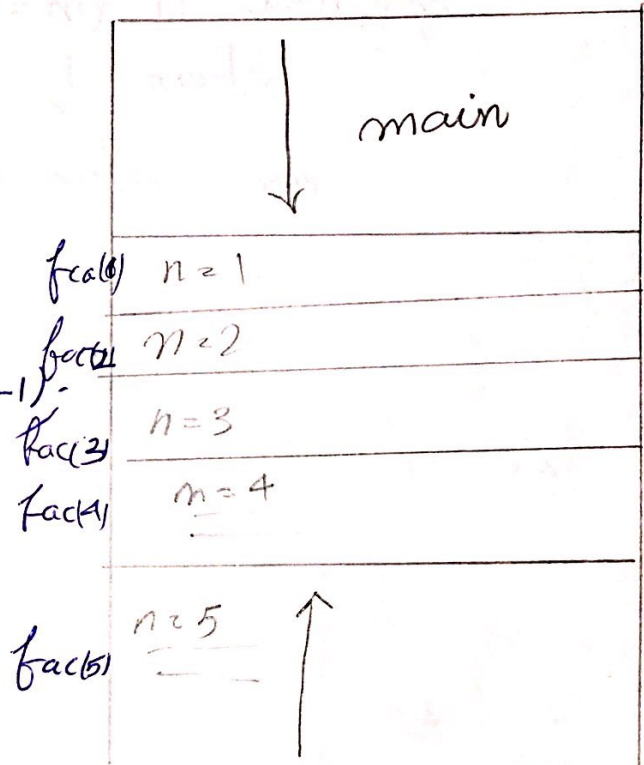 main
fca(1) n = 1
fac(2) n = 2
-1).
fac(3) n = 3
fac(4) n = 4
fac(5) n = 5